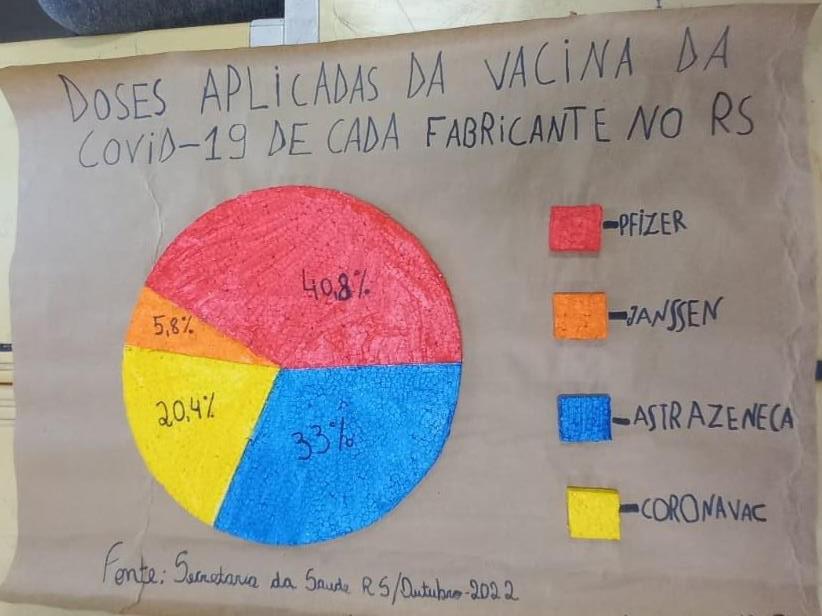 DOSES APLICADAS DA VACINA DA
COVID-19 DE CADA FABRICANTE NO RS
40,8%
PFIZER
5,8%
JANSSEN
20,4%
33%
ASTRAZENECA
CORONAVAC
Fonte: Secretaria da Saude RS/Outubro-2022